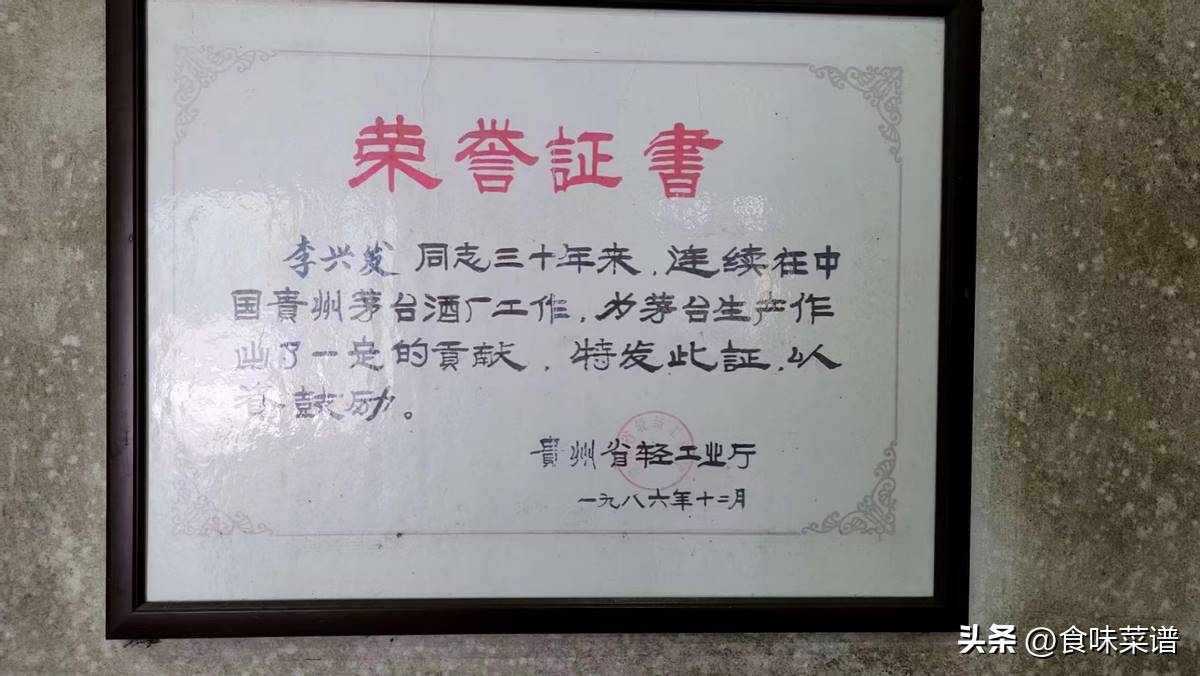 荣誉証書
李兴发 同志三十年来，连续在中
国貴州茅台酒厂工作，为茅台生产作
出了一定的貢献，特发此証，以
资鼓励。
貴州省轻工业厅
一九八六年十二月
头条 @食味菜谱